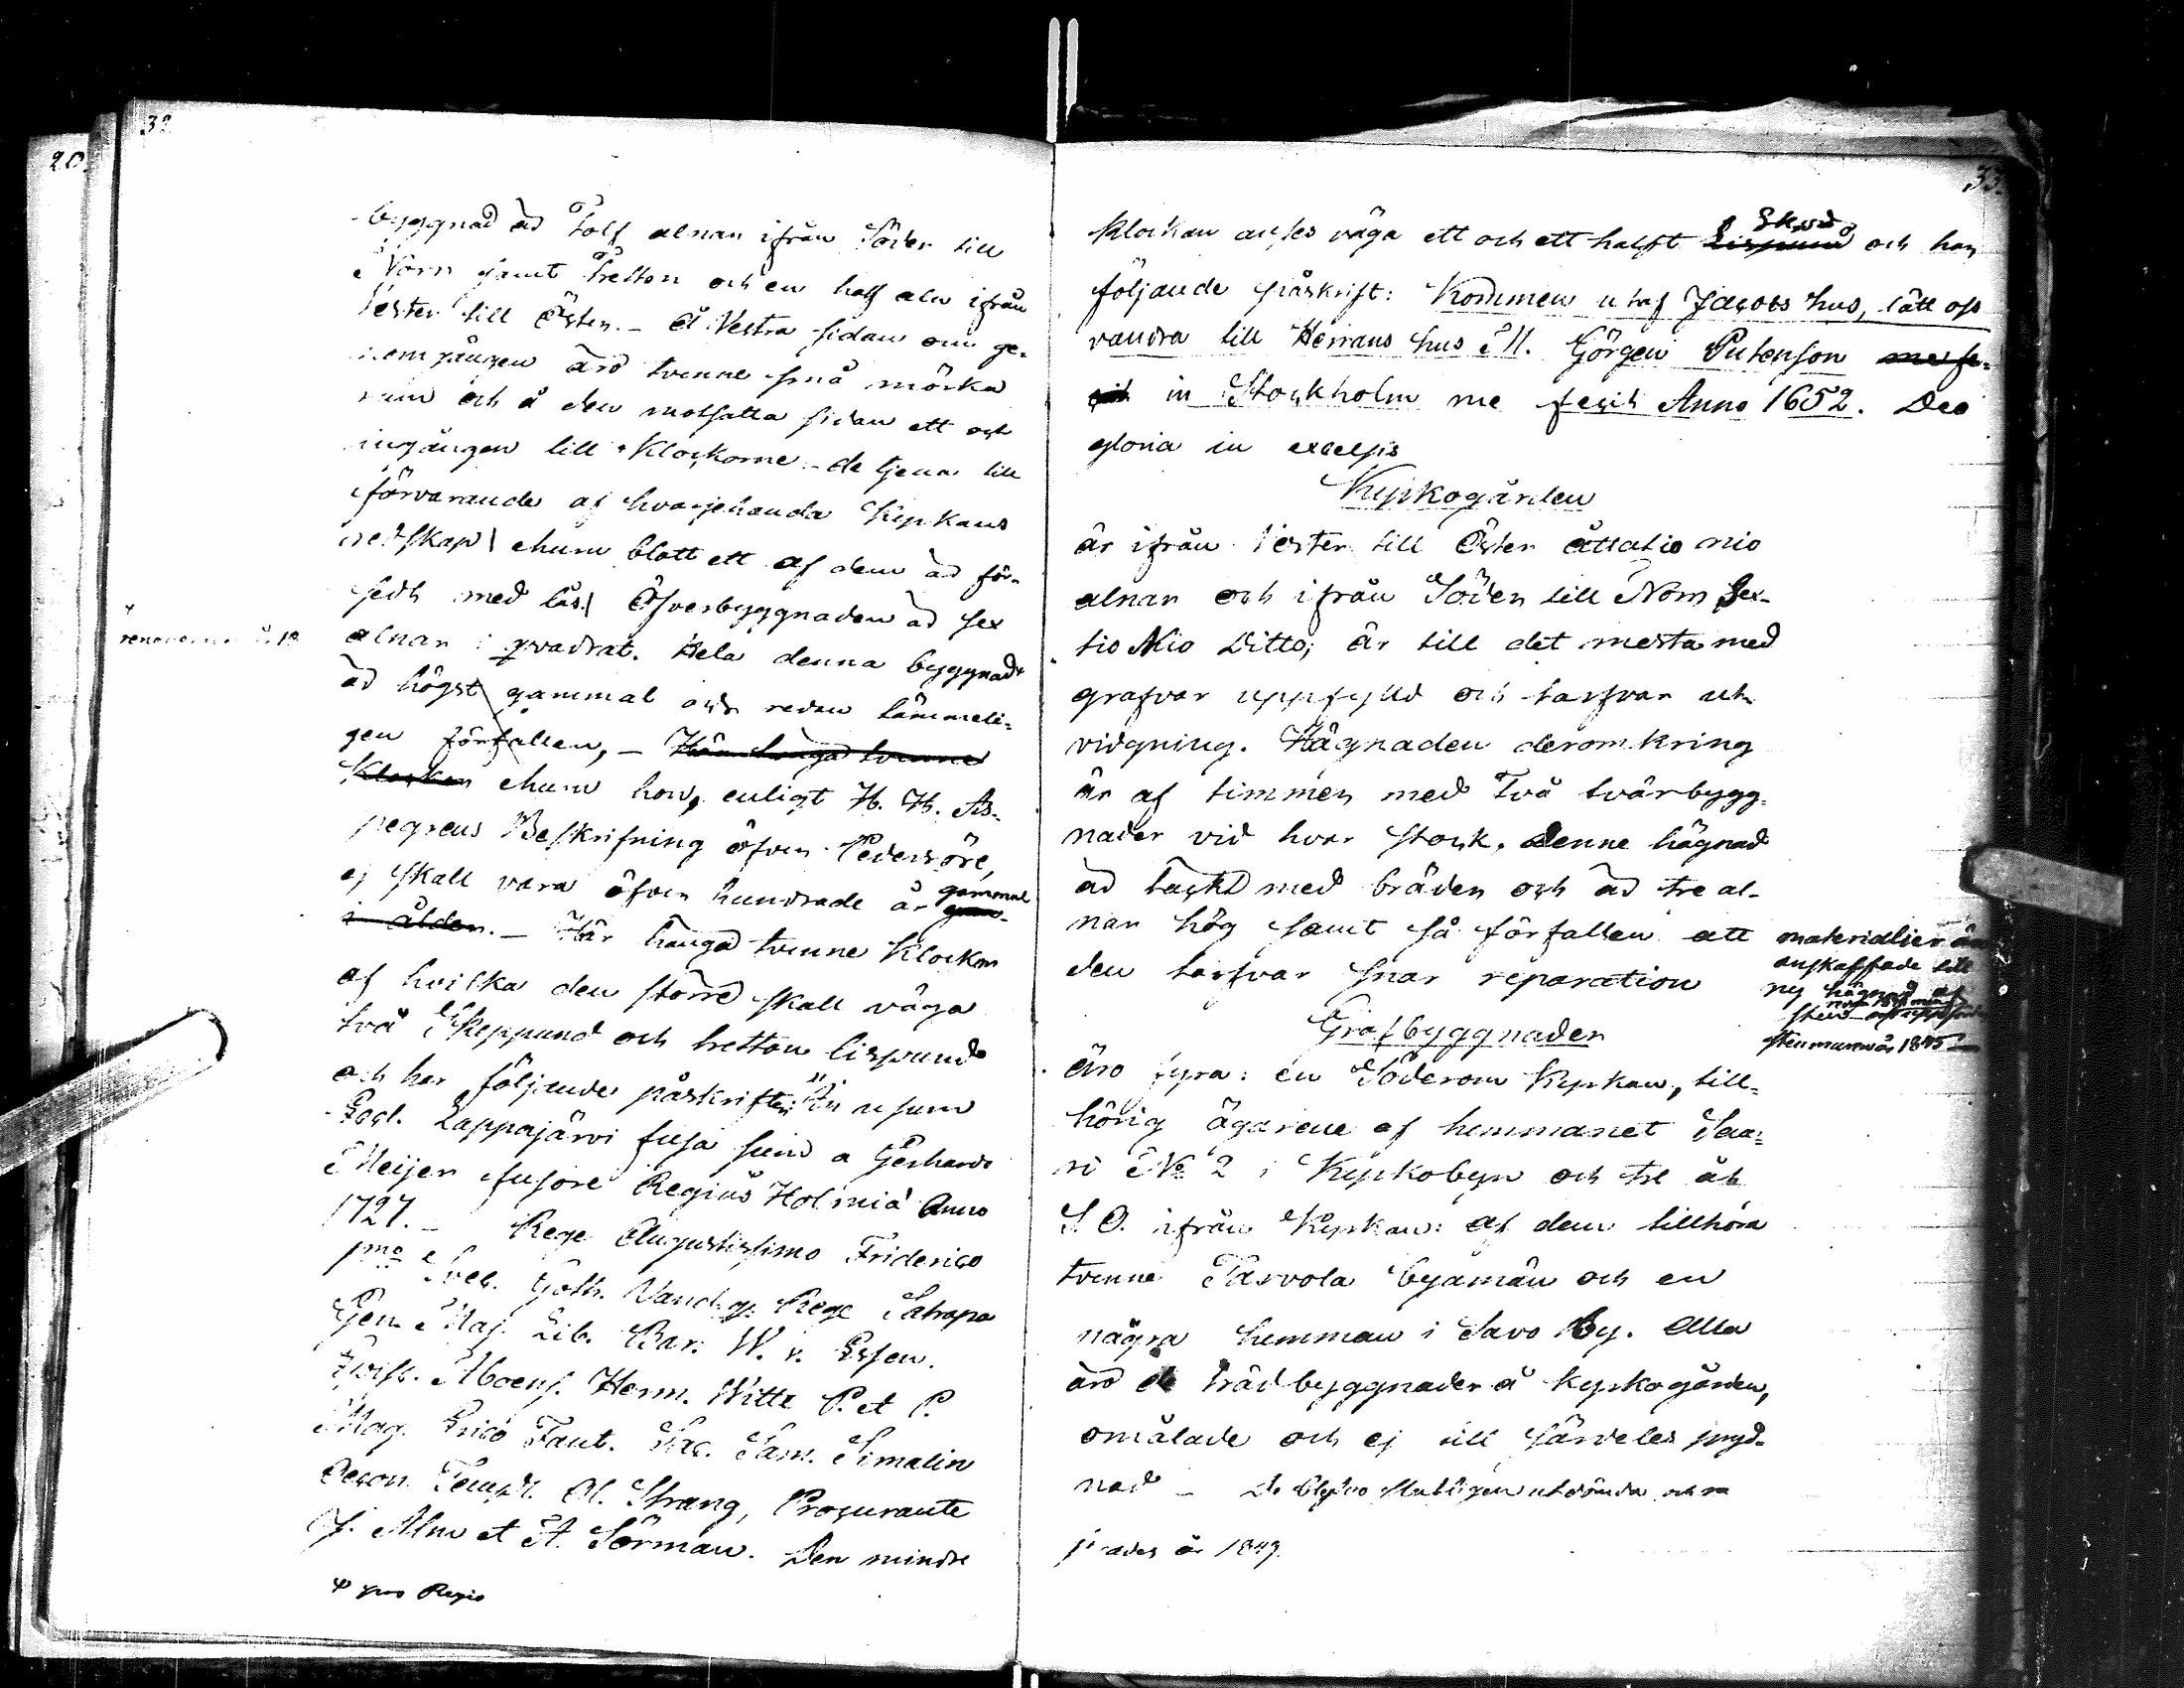 32
20.
byggnad är Tolf alnar ifrån Söder till
Norr samt Tretton och en half aln ifrån
Vester till Öster. – Å Vestra sidan om ge-
nomgången äro tvenne små mörka
rum och å den motsatta sidan ett och
ingången till Klockorne – de tjena till
förvarande af hvarjehanda Kyrkans
redskap \ ehuru blott ett af dem är för-
sedt med lås. \ Öfverbyggnaden är sex
alnar i qvadrat. Hela denna byggnad
är högst gammal och redan tämmeli-
gen förfallen, – Här hänga tvenne
Klockor ehuru hon, enligt H. H. As-
pegrens Beskrifning öfver Pedersöre,
ej skall vara öfver hundrade år gammal
i ålder. – Här hänga tvenne Klockor
af hvilka den större skall väga
två Skeppund och tretton lispund
och har följande påskrifter: "In usum
Eccl. Lappajärvi fusa sum a Gerhard
Meijer fusore Regius Holmiä Anno
1727. – Rege Augustissimo Friderico
pmo Svec. Goth. Vand. gr. Rege Satrapa
Gen. Maj. Lib. Bar. W. v. Essen.
Episc. Aboens. Herm. Witte P. et P.
Mag. Erico Faut. Sac. Sam. Simalin
Oecon. Templ. Ol. Strang, Procurante
J. Alm et A. Sörman. Den mindre
pro Regio
33.
Klockan anses väga ett och ett halft Lispund Skpd och har
följande påskrift: Kommen utaf Jacobs hus, lått oss
vandra till Herrans hus M. Görgen Putenson me fe-
cit in Stockholm me fecit Anno 1652. Deo
gloria in excelsis
Kyrkogården
är ifrån Vester till Öster åttatio nio
alnar och ifrån Söder till Norr Sex-
tio Nio Ditto; är till det mesta med
grafvar uppfylld och tarfvar ut-
vidgning. Hägnaden deromkring
är af timmer med Två tvärbygg-
nader vid hvar stock. Denne hägnad
är täckt med bräder och är tre al-
nar hög samt så förfallen att
den tarfvar snar reparation
materialier är
anskaffade till
ny hägnad af
sten
stenmur år 1845
Grafbyggnader
äro fyra: en Söderom Kyrkan, till-
hörig ägarene af hemmanet Saa-
ri No 2 i Kyrkobyn och tre åt
S.O. ifrån Kyrkan: af dem tillhöra
tvenne Tarvola byamän och en
några hemman i Savo By. Alla
äro de trädbyggnader å kyrkogården,
omålade och ej till särdeles pryd-
nad – De blefvo slutligen utdömda och
år 1849.